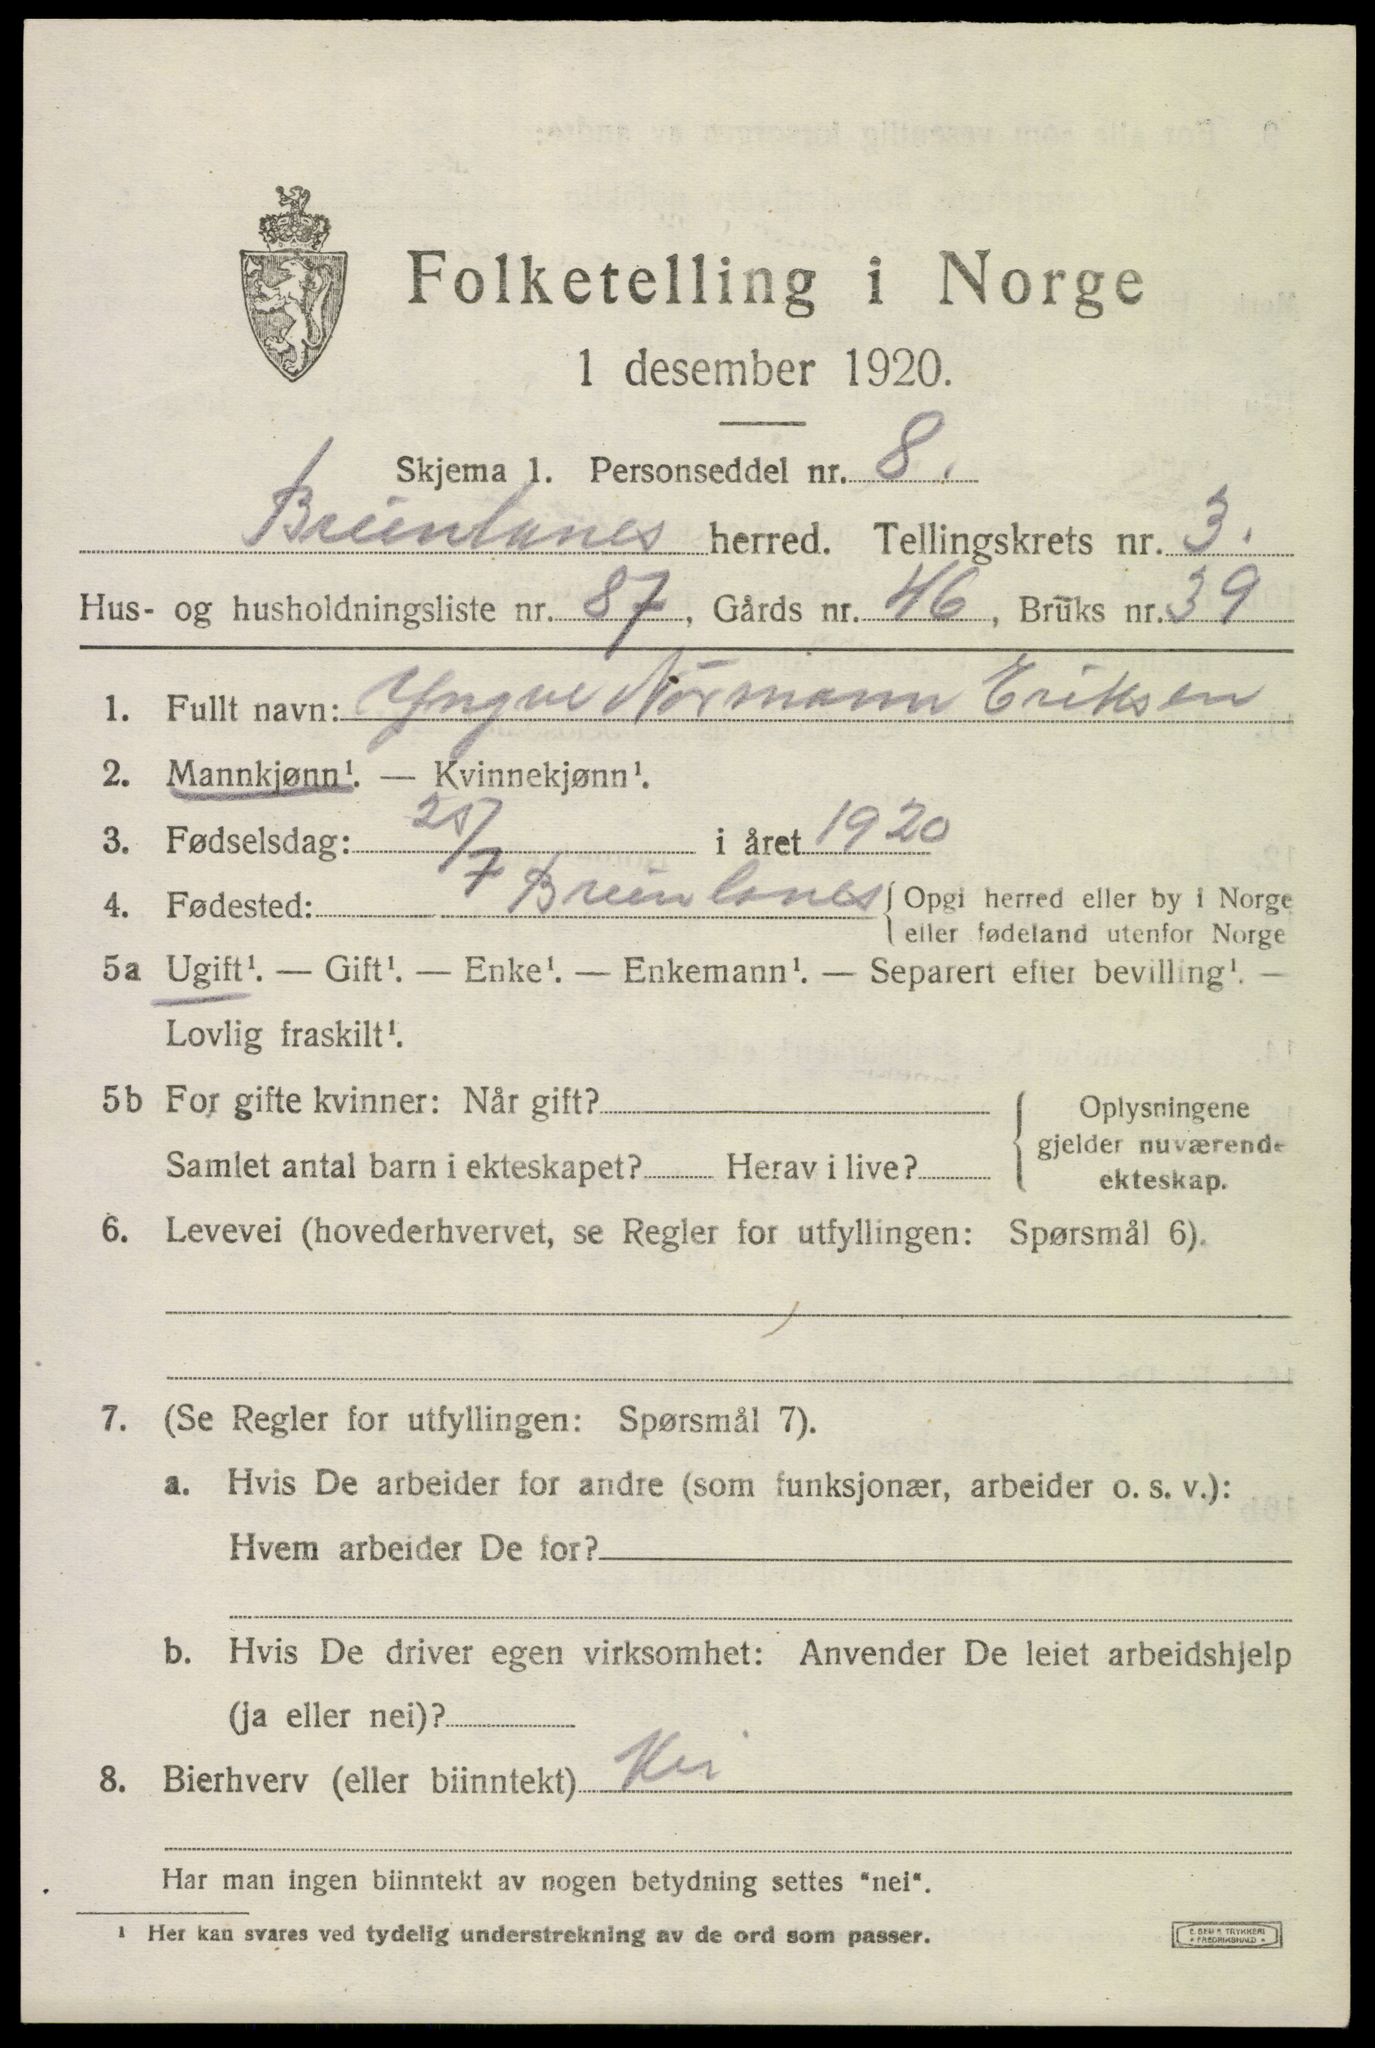 Folketelling i Norge
1 desember 1920.
Skjema 1. Personseddel nr. 8.
Brunlanes herred. Tellingskrets nr. 3.
Hus- og husholdningsliste nr. 87, Gårds nr. 46, Bruks nr. 39
1. Fullt navn: Yngve Normann Eriksen
2. Mannkjønn¹. — Kvinnekjønn¹.
3. Fødselsdag: 25/7 i året 1920
4. Fødested: Brunlanes { Opgi herred eller by i Norge
eller fødeland utenfor Norge
5a Ugift¹. — Gift¹. — Enke¹. — Enkemann¹. — Separert efter bevilling¹. —
Lovlig fraskilt¹.
5b For gifte kvinner: Når gift?
Samlet antal barn i ekteskapet? Herav i live?
{ Oplysningene
gjelder nuværende
ekteskap.
6. Levevei (hovederhvervet, se Regler for utfyllingen: Spørsmål 6).
7. (Se Regler for utfyllingen: Spørsmål 7).
a. Hvis De arbeider for andre (som funksjonær, arbeider o. s. v.):
Hvem arbeider De for?
b. Hvis De driver egen virksomhet: Anvender De leiet arbeidshjelp
(ja eller nei)?
8. Bierhverv (eller biinntekt) Nei
Har man ingen biinntekt av nogen betydning settes "nei".
¹ Her kan svares ved tydelig understrekning av de ord som passer.
E. SEM'S TRYKKERI
FREDRIKSHALD